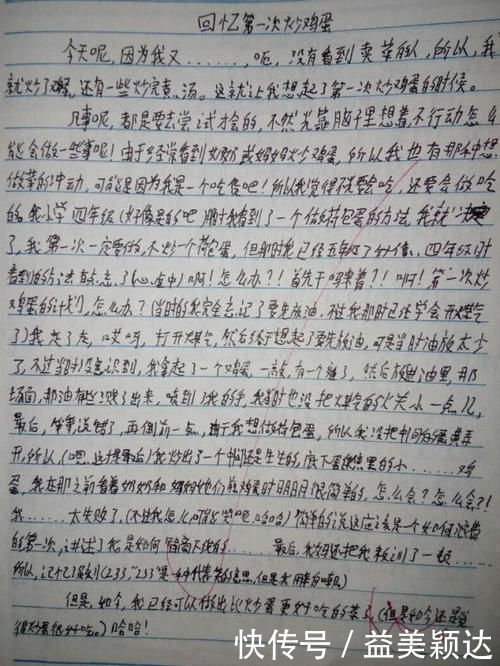 回忆第一次炒鸡蛋
今天呢,因为我又……,呃,没有看到卖菜的人,所以,我
就炒了鸡蛋,还有一些炒完煮汤。这就让我想起了第一次炒鸡蛋的时候。
凡事呢,都是要去尝试才会的,不然光靠脑子里想着,不行动怎么
能会做一些事呢!由于经常看到奶奶或妈妈炒鸡蛋,所以我也有那种想
做菜的冲动,可能是因为我是一个吃货吧!所以我觉得不仅要会吃,还要会做吃
的。我小学四年级(好像是的吧)那时我看到了一个做荷包蛋的方法,我就决定
了,我第一次一定要做,不炒一个荷包蛋,但那时我已经五年级了
看到的方法有点忘了(心虚中)啊!怎么办?!首先干吗来着?!啊!第一次炒
鸡蛋的计划,怎么办?(当时的我完全忘记了要先放油,不过我那时已经学会开煤气
了)我走了走,哎呀,打开煤气,然后终于想起了要先放油,可是当时油放太少
了,不过当时没意识到,我拿起了一个鸡蛋,一敲,有一个缝了,然后放进油里,那
场面,那油有些溅了出来,喷到了我的手,我当时也没把煤气的火关小一点儿,
最后,等等说错了,再倒前一点,由于我想做荷包蛋,所以我没把中间的蛋黄弄
开,所以,(嗯,这才是最后)我炒出了一个中间还是生生的,底下蛋焦黑的小……鸡
蛋,我在那之前看着奶奶和妈妈他们煎鸡蛋时明明很简单的,怎么会?怎么会?!
我……太失败了,(不过我怎么可能哭呢,哈哈)简单的说这应该是一个如何浪费
的第一次,讲述了我是如何 的……最后,我妈还把我教训了一顿……
所以,记忆深刻(233,“233”是一种 的意思,但是我用来自嘲)
但是,如今,我已经可以做出比炒蛋更好吃的菜了(但是如今还是觉
得炒蛋很好吃。)哈哈!
快传号/益美颖达